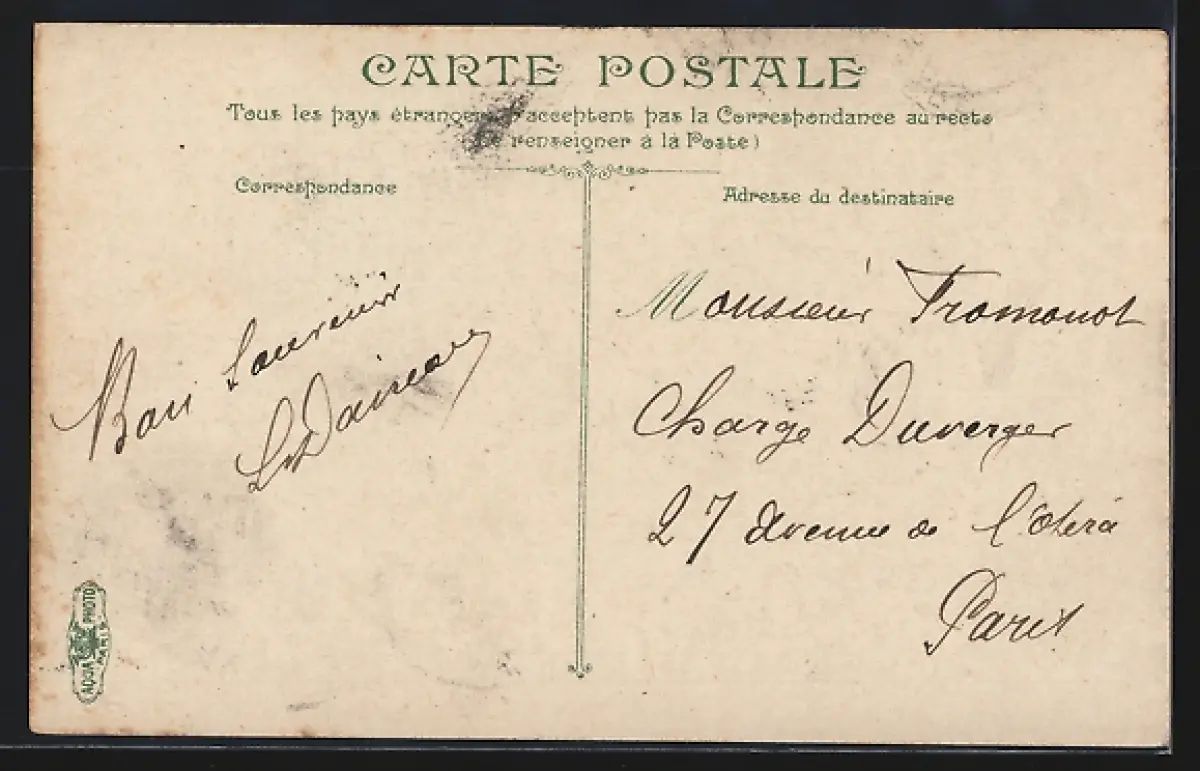 CARTE POSTALE
Tous les pays étrangers n'acceptent pas la Correspondance au recto
(Se renseigner à la Poste)
Correspondance
Adresse du destinataire
Bon Souvenir
Monsieur Fromonot
Charge Duverger
27 Avenue de l'Opéra
Paris
AQUA PHOTO
PARIS